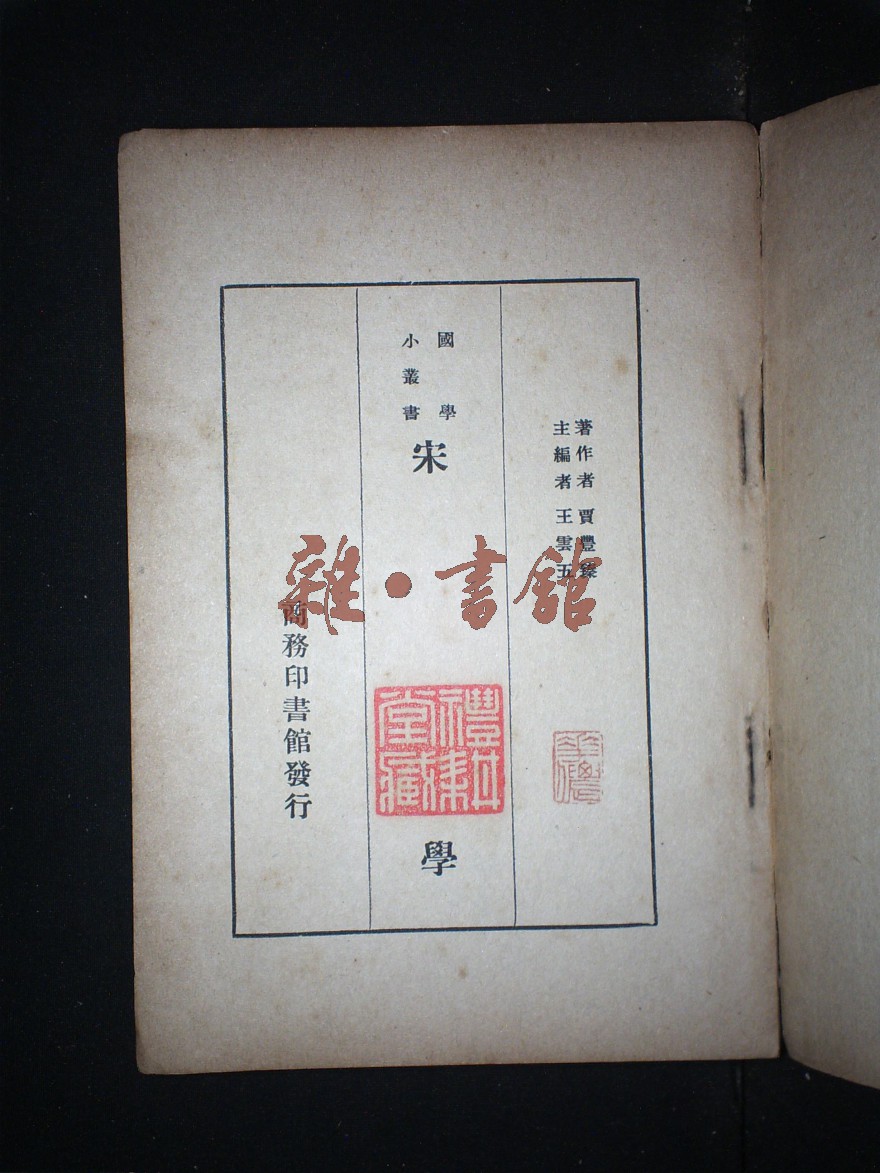 著作者 賈豐臻
主編者 王雲五
國學
小叢書
宋學
商務印書館發行
禮耕堂藏
雜·書館